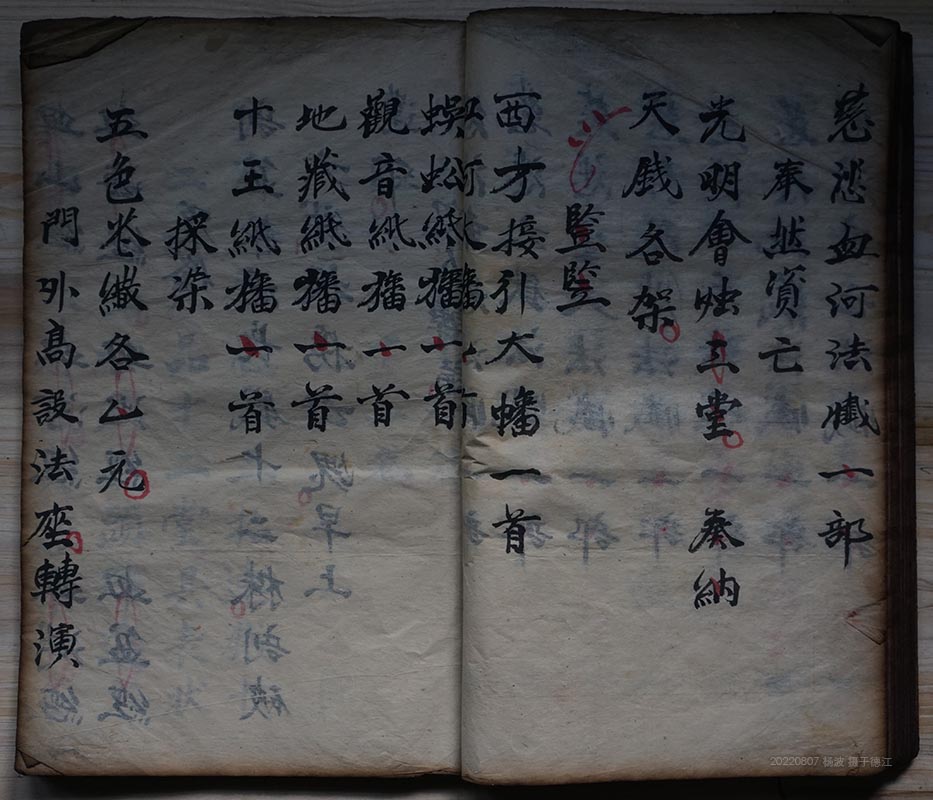 慈悲血河法懴一部
奉然資亡
光明會灿三堂 奏納
天銭各架
竪竪
西方接引大旛一首
蜈蚣紙旛一首
觀音紙旛一首
地藏紙旛一首
十王紙旛一首
採架
五色卷纖各乙元
門外髙設法座轉演
20220807 杨波 摄于德江